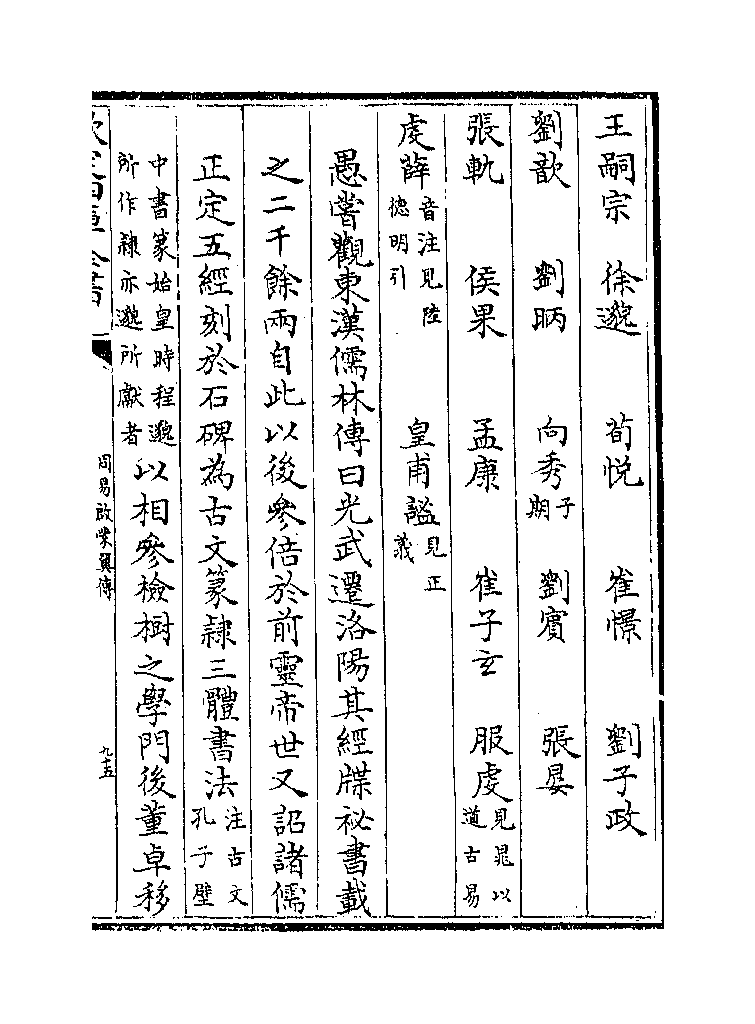 王嗣宗　徐邈　荀悦　崔憬　劉子政
劉歆　劉昞　向秀子期　劉賓　張晏
張軌　侯果　孟康　崔子玄　服䖍見晁以道古易
䖍薛音注見陸德明引　皇甫謐見正義
愚嘗觀東漢儒林傳曰光武遷洛陽其經牒祕書載
之二千餘兩自此以後參倍於前靈帝世又詔諸儒
正定五經刻於石碑為古文篆隸三體書法注古文孔子壁
中書篆始皇時程邈所作隸亦邈所獻者以相參檢樹之學門後董卓移
周易啟蒙翼傳
九十五